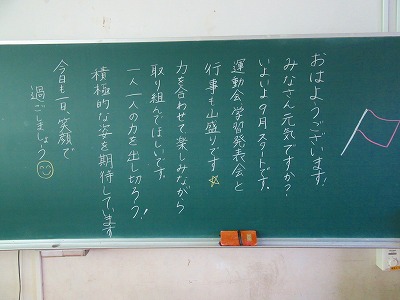 おはようございます!
みなさん元気ですか?
いよいよ9月スタートです。
運動会学習発表会と
行事も山盛りです☆
力を合わせて楽しみながら
取り組んでほしいです。
一人一人の力を出し切ろう!
積極的な姿を期待しています
今日も一日、笑顔で
過ごしましょう